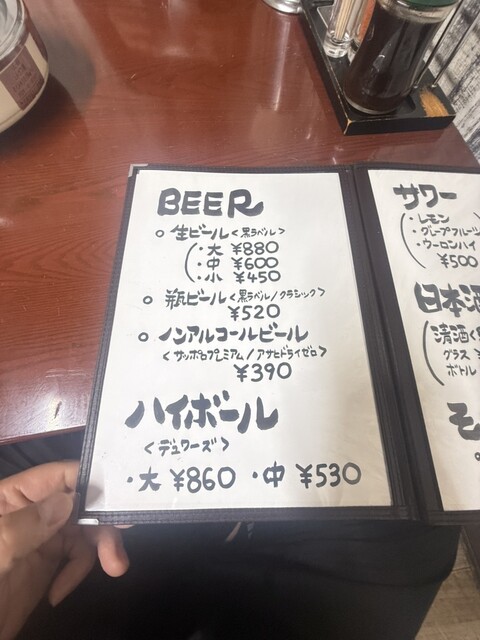 BEER
○ 生ビール<黒ラベル>
・大 ¥880
・中 ¥600
・小 ¥450
○ 瓶ビール<黒ラベル/クラシック>
¥520
○ ノンアルコールビール
<サッポロプレミアム/アサヒドライゼロ>
¥390
ハイボール
<デュワーズ>
・大 ¥860 ・中 ¥530
サワー
・レモン
・グレープフルーツ
・ウーロンハイ
¥500
日本酒
清酒<
グラス ¥
ボトル
モ